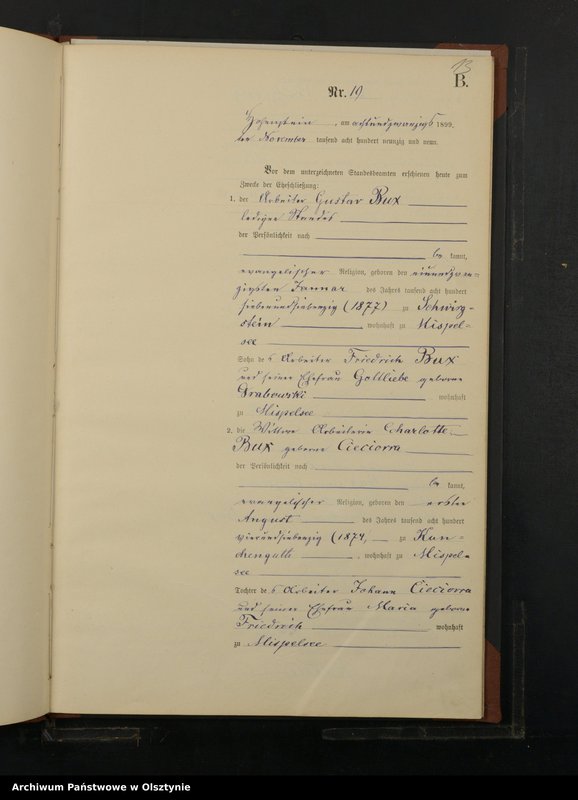 13
B.
Nr. 19
Hohenstein, am achtundzwanzigs 1899.
ten November tausend acht hundert neunzig und neun.
Vor dem unterzeichneten Standesbeamten erschienen heute zum
Zwecke der Eheschließung:
1. der Arbeiter Gustav Bux
ledigen Standes
der Persönlichkeit nach
be kannt,
evangelischer Religion, geboren den einundzwan-
zigsten Januar des Jahres tausend acht hundert
siebenundsiebenzig (1877) zu Schwirg-
stein wohnhaft zu Mispel-
see
Sohn des Arbeiter Friedrich Bux
und seiner Ehefrau Gottliebe geborne
Grabowski wohnhaft
zu Mispelsee
2. die Wittwe Arbeiterin Charlotte
Bux geborne Cieciorra
der Persönlichkeit nach
be kannt,
evangelischer Religion, geboren den ersten
August des Jahres tausend acht hundert
vierundsiebenzig (1874, zu Kun-
chengutte, wohnhaft zu Mispel-
see
Tochter des Arbeiter Johann Cieciorra
und seiner Ehefrau Maria geborne
Friedrich wohnhaft
zu Mispelsee
Archiwum Państwowe w Olsztynie